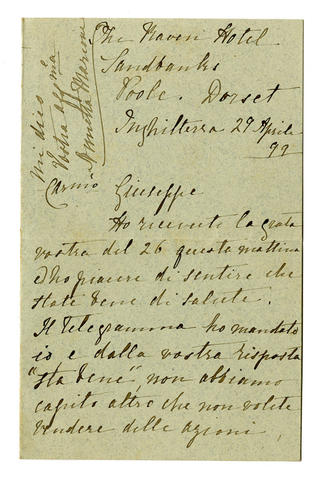 The Haven Hotel
Sandbanks
Poole. Dorset
Inghilterra 29 Aprile
99
Carmo Giuseppe
Ho ricevuto la grata
vostra del 26 questa mattina
e ho piacere di sentire che
state bene di salute.
Il Telegramma ho mandato
io e dalla vostra risposta
"sta bene", non abbiamo
capito altro che non volete
vendere delle azioni,
mi dico
Vostra affma
Annetta Marconi